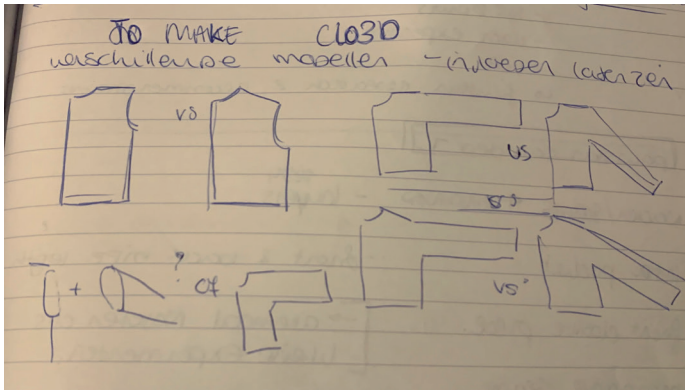 TO MAKE CLO3D
verschillende modellen - invloeden laten zien
vs
vs
vs
+ ? of
vs